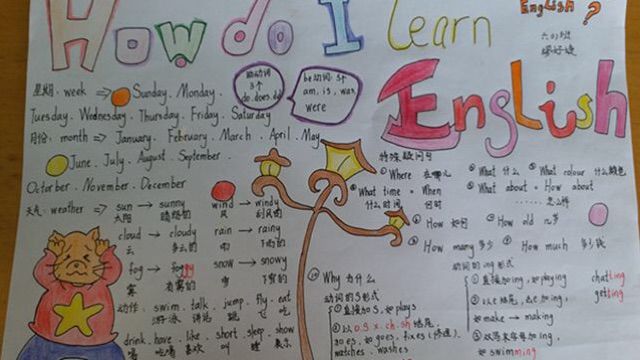 How do I learn
English
English ?
六(1)班
星期. week ⇒ Sunday. Monday.
Tuesday. Wednesday. Thursday. Friday. Saturday
月份. month ⇒ January. February. March. April. May
June. July. August. September.
Octorber. November. December
助动词
3个
do.does.did
be动词: 5个
am, is, was,
were
天气. weather ⇒ sun → sunny
太阳 晴朗的
wind → windy
风 刮风的
cloud → cloudy
云 多云的
rain → rainy
雨 下雨的
fog → foggy
雾 有雾的
snow → snowy
雪 下雪的
动作. swim. talk. jump. fly. eat
游泳 讲话 跳 飞 吃
drink. have. like. short. sleep. show
喝 吃喝 喜欢 叫 睡 展示
特殊疑问句
① Where 在哪儿
② What 什么
③ What colour 什么颜色
④ What time = When
什么时间 何时
What about = How about
……怎么样
How 如何
How old 几岁
How many 多少
How much 多少钱
⑩ Why 为什么
动词的S形式
① 直接加s, 如plays
② 以o.s.x.ch.sh结尾,
加es, 如goes, fixes (修理)
watches. washes
动词的ing形式
① 直接加ing, 如playing
② 以e结尾, 去e加ing,
如make → making
③ 双写末字母加ing,
如swimming
chatting
getting